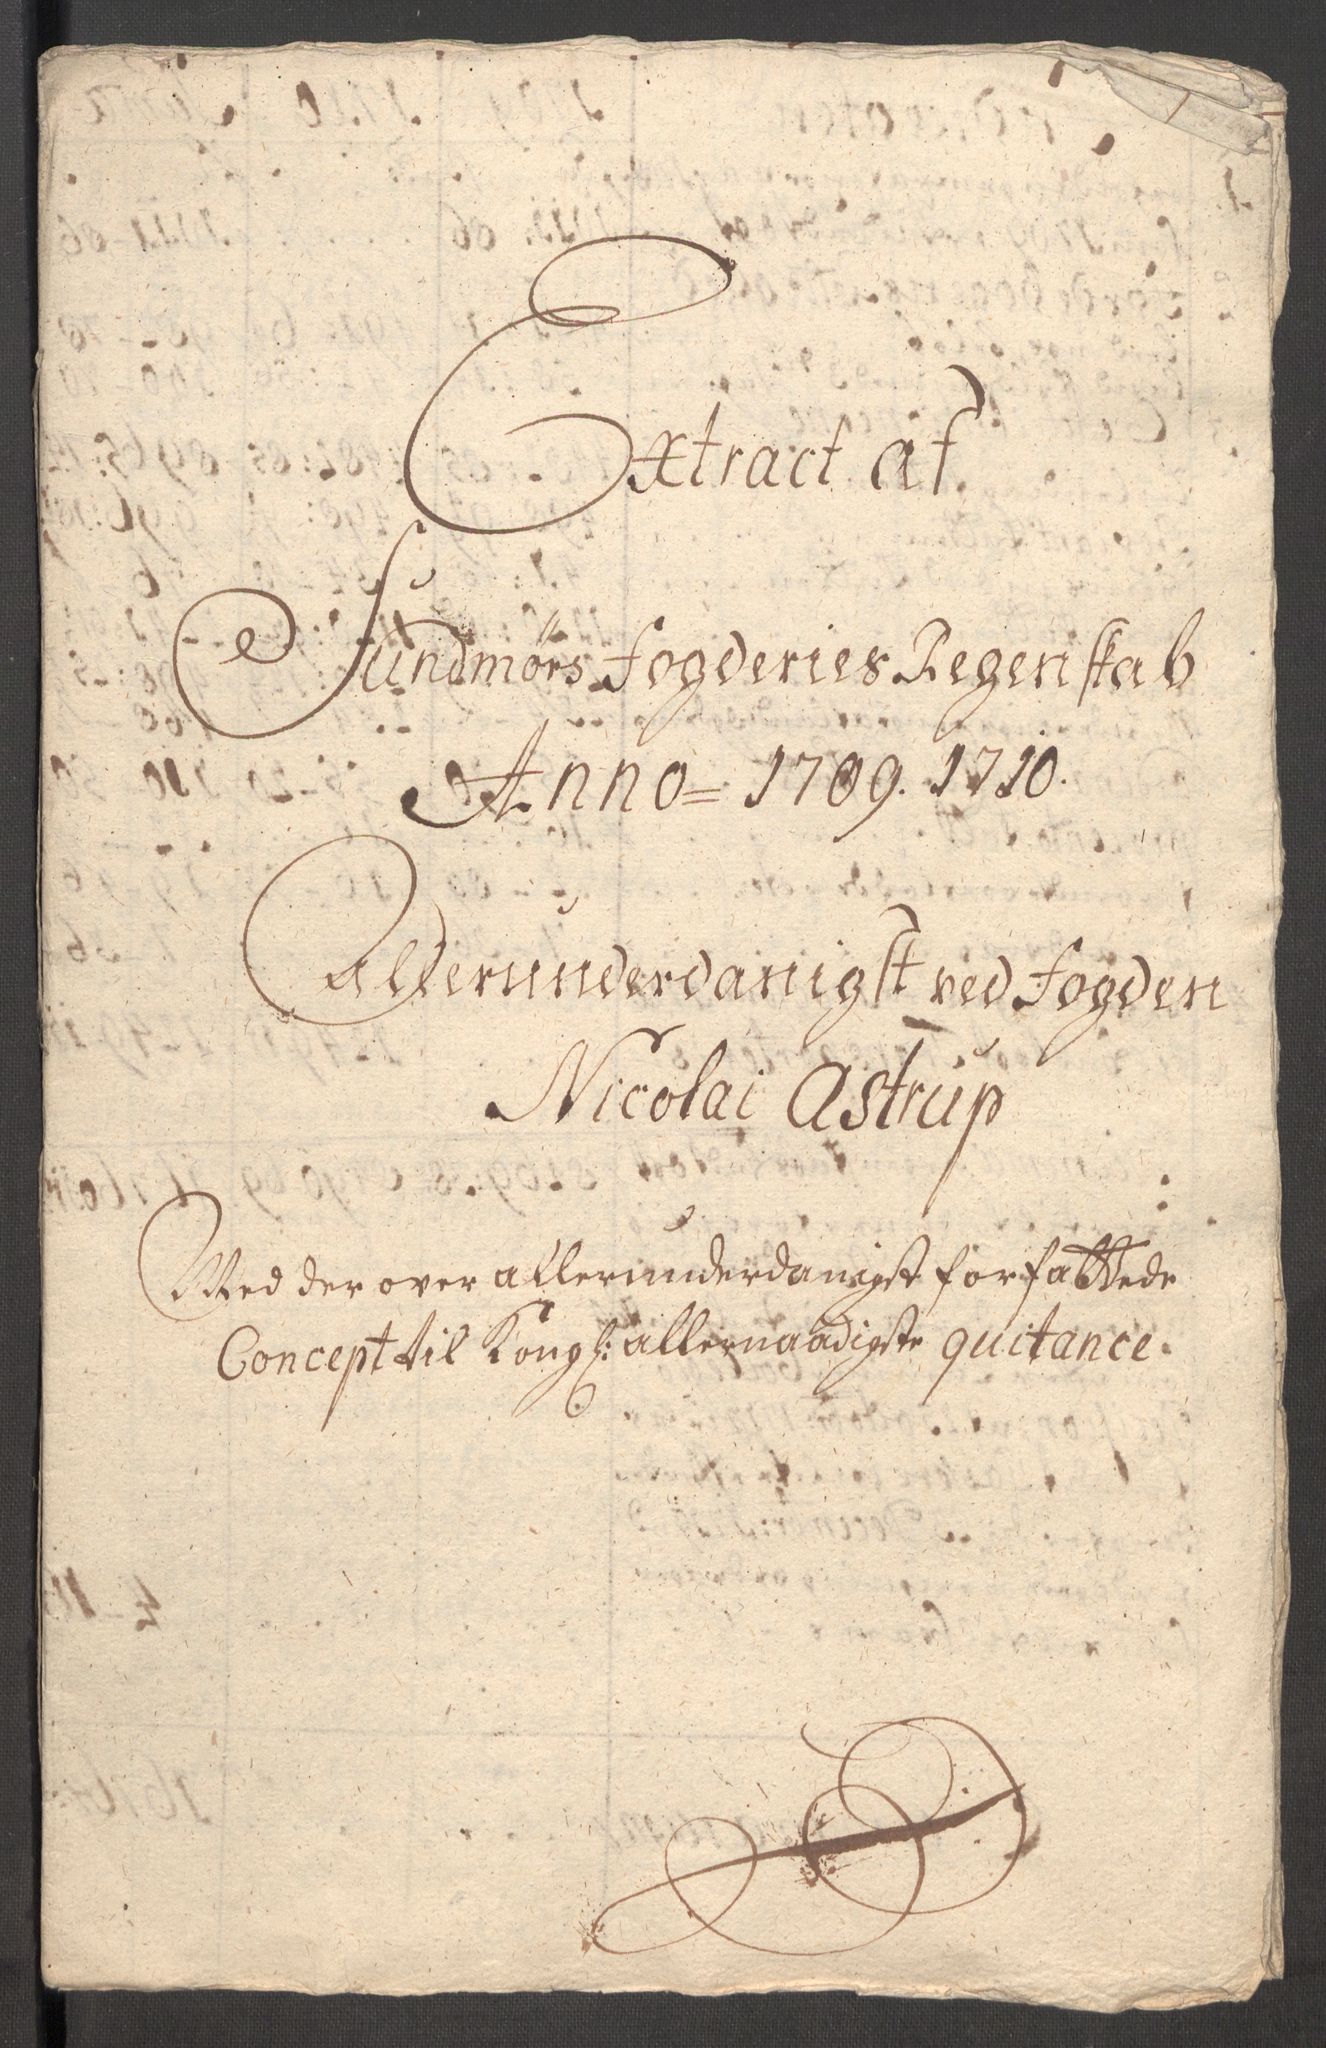 Extract af
Sundmörs Fogderies Regenskab
Anno = 1709. 1710.
Allerunderdanigst ved Fogden
Nicolai Astrup
Med der over allerunderdanigst forfattede
Concept til Kongl: allernaadigste quitance.